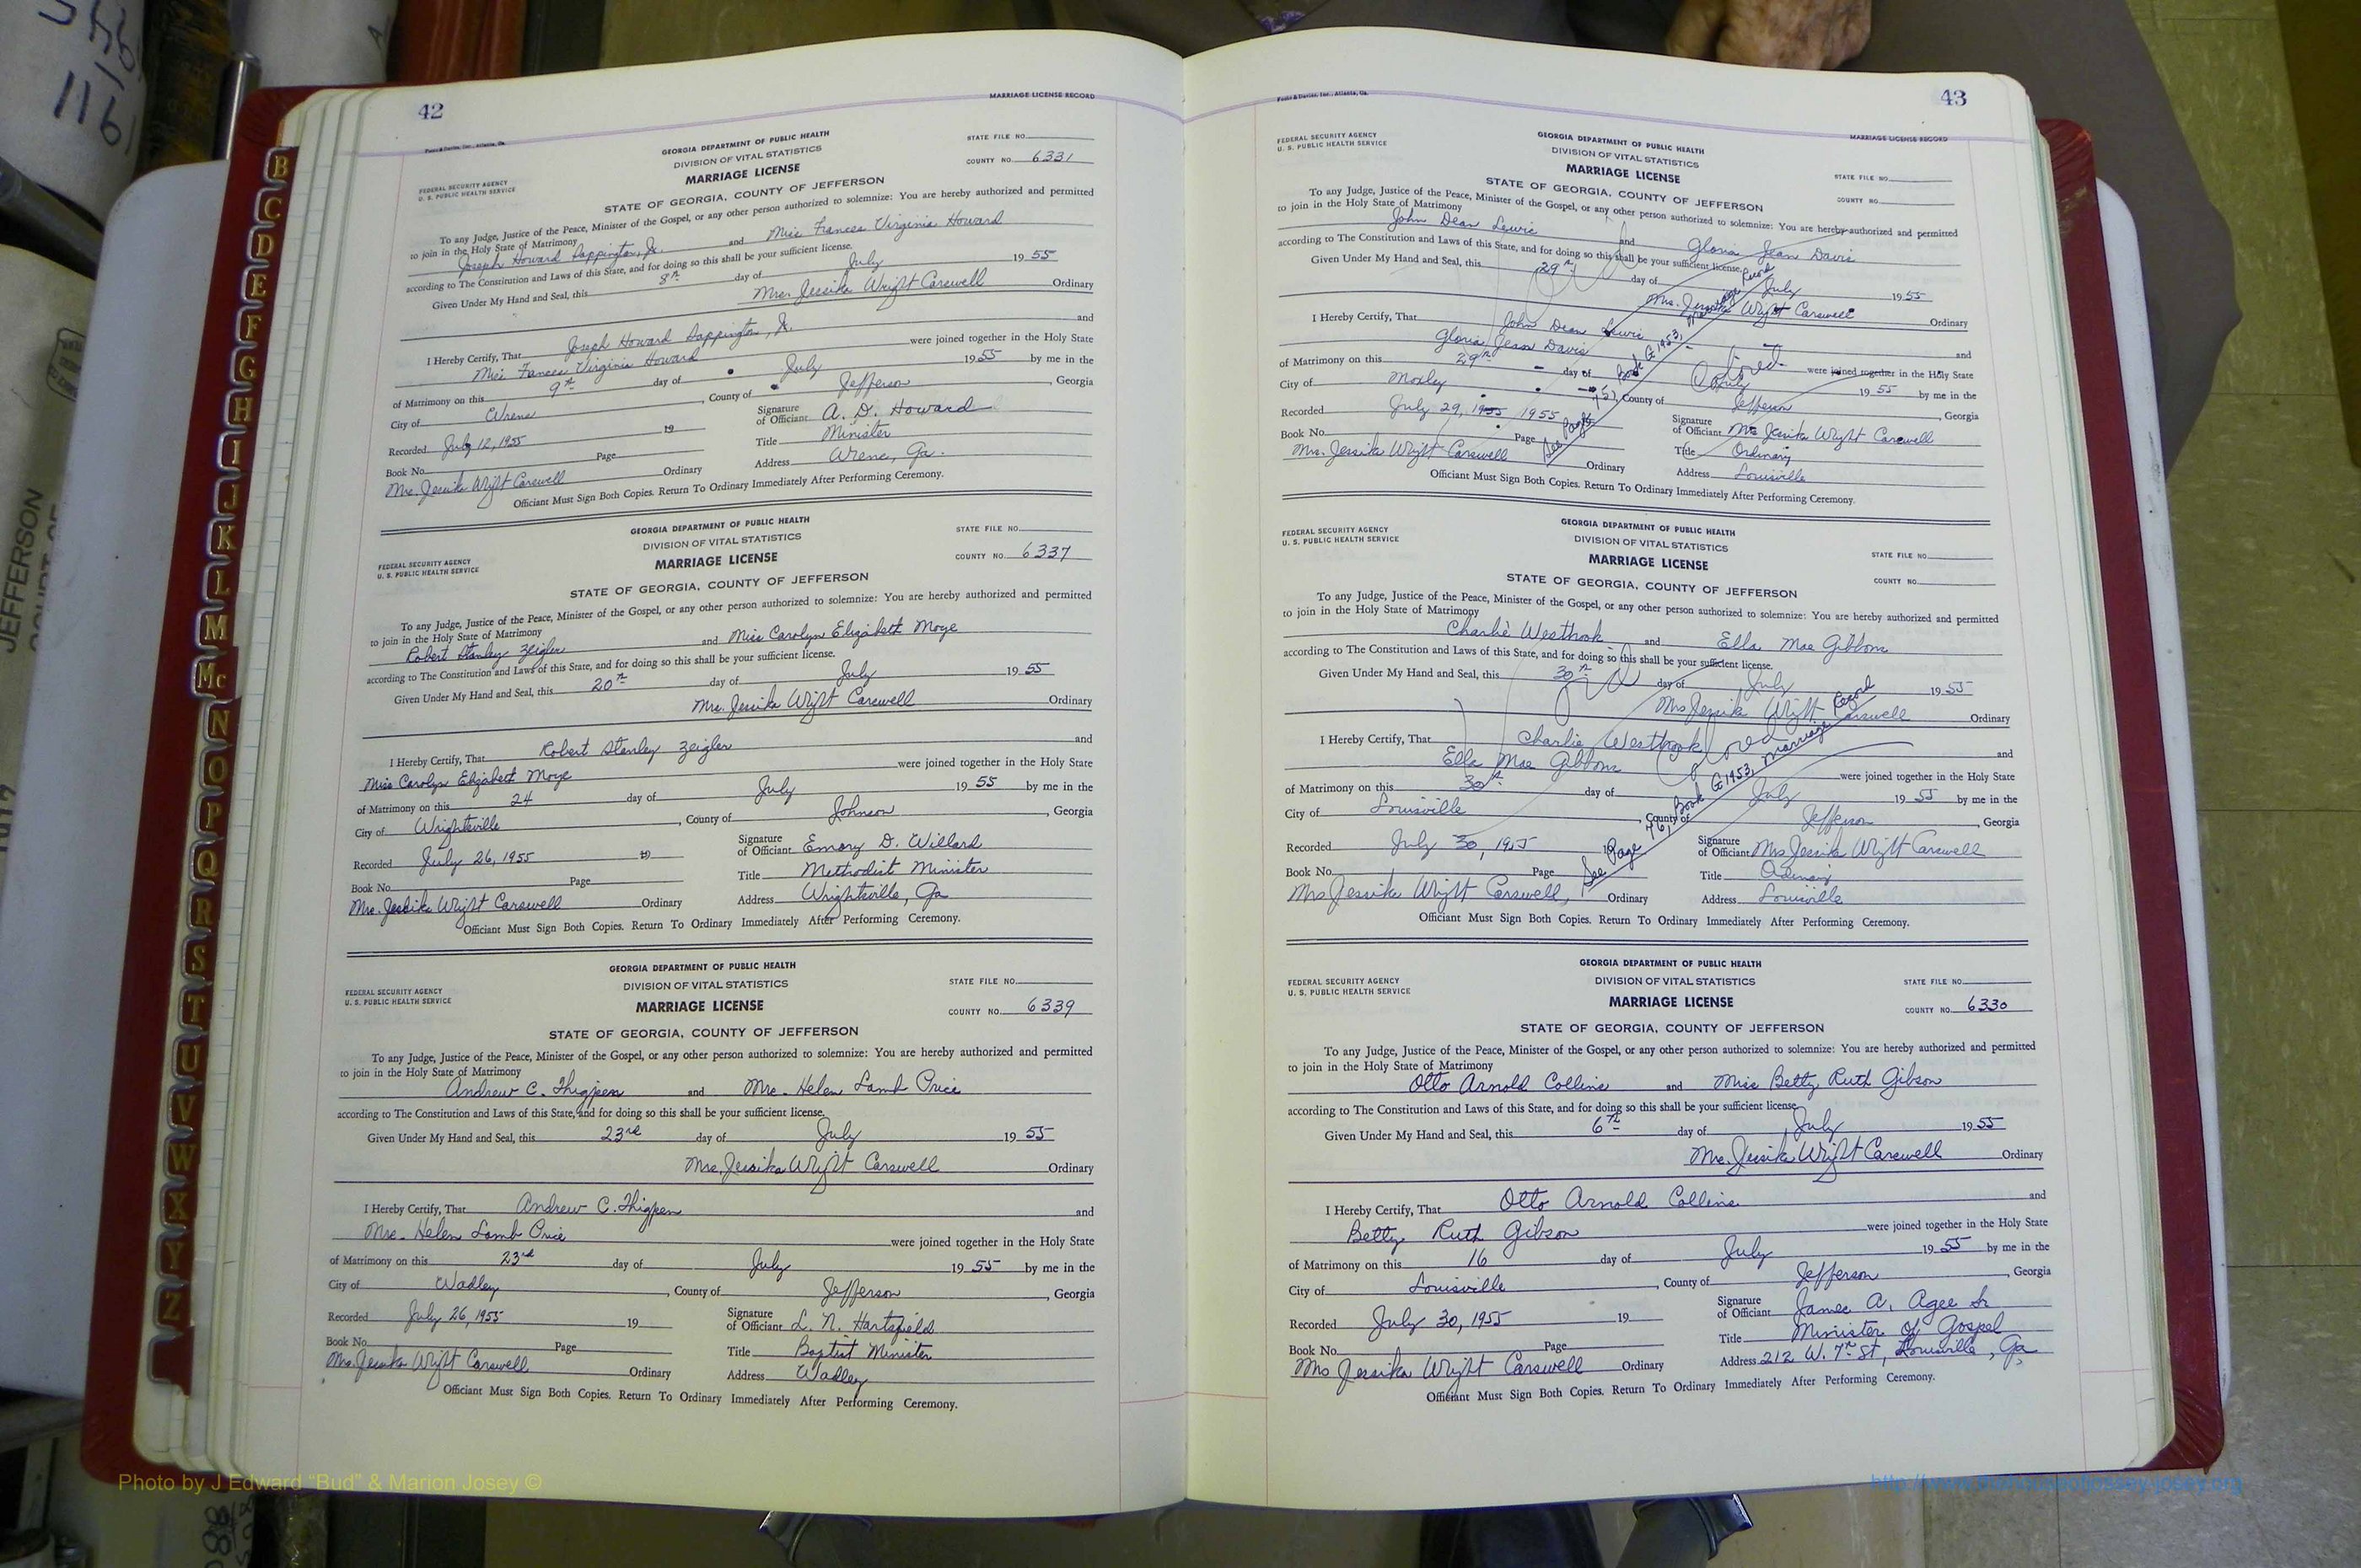 42
MARRIAGE LICENSE RECORD
Foote & Davies, Inc., Atlanta, Ga.
GEORGIA DEPARTMENT OF PUBLIC HEALTH
DIVISION OF VITAL STATISTICS
MARRIAGE LICENSE
STATE FILE NO.
COUNTY NO. 6331
FEDERAL SECURITY AGENCY
U. S. PUBLIC HEALTH SERVICE
STATE OF GEORGIA, COUNTY OF JEFFERSON
To any Judge, Justice of the Peace, Minister of the Gospel, or any other person authorized to solemnize: You are hereby authorized and permitted
to join in the Holy State of Matrimony
Joseph Howard Sappington, Jr. and Miss Frances Virginia Howard
according to The Constitution and Laws of this State, and for doing so this shall be your sufficient license.
Given Under My Hand and Seal, this 8th day of July 19 55
Mrs. Jessika Wright Carswell Ordinary
I Hereby Certify, That Joseph Howard Sappington, Jr. and
Miss Frances Virginia Howard were joined together in the Holy State
of Matrimony on this 9th day of July 19 55 by me in the
City of Wrens, County of Jefferson, Georgia
Recorded July 12, 1955 19
Signature of Officiant A. D. Howard
Book No. Page
Title Minister
Mrs. Jessika Wright Carswell Ordinary
Address Wrens, Ga.
Officiant Must Sign Both Copies. Return To Ordinary Immediately After Performing Ceremony.
GEORGIA DEPARTMENT OF PUBLIC HEALTH
DIVISION OF VITAL STATISTICS
MARRIAGE LICENSE
STATE FILE NO.
COUNTY NO. 6337
FEDERAL SECURITY AGENCY
U. S. PUBLIC HEALTH SERVICE
STATE OF GEORGIA, COUNTY OF JEFFERSON
To any Judge, Justice of the Peace, Minister of the Gospel, or any other person authorized to solemnize: You are hereby authorized and permitted
to join in the Holy State of Matrimony
Robert Stanley Zeigler and Miss Carolyn Elizabeth Moye
according to The Constitution and Laws of this State, and for doing so this shall be your sufficient license.
Given Under My Hand and Seal, this 20th day of July 19 55
Mrs. Jessika Wright Carswell Ordinary
I Hereby Certify, That Robert Stanley Zeigler and
Miss Carolyn Elizabeth Moye were joined together in the Holy State
of Matrimony on this 24 day of July 19 55 by me in the
City of Wrightsville, County of Johnson, Georgia
Recorded July 26, 1955 19
Signature of Officiant Emory D. Willard
Book No. Page
Title Methodist Minister
Mrs. Jessika Wright Carswell Ordinary
Address Wrightsville, Ga
Officiant Must Sign Both Copies. Return To Ordinary Immediately After Performing Ceremony.
GEORGIA DEPARTMENT OF PUBLIC HEALTH
DIVISION OF VITAL STATISTICS
MARRIAGE LICENSE
STATE FILE NO.
COUNTY NO. 6339
FEDERAL SECURITY AGENCY
U. S. PUBLIC HEALTH SERVICE
STATE OF GEORGIA, COUNTY OF JEFFERSON
To any Judge, Justice of the Peace, Minister of the Gospel, or any other person authorized to solemnize: You are hereby authorized and permitted
to join in the Holy State of Matrimony
Andrew C. Thigpen and Mrs. Helen Lamb Price
according to The Constitution and Laws of this State, and for doing so this shall be your sufficient license.
Given Under My Hand and Seal, this 23rd day of July 19 55
Mrs. Jessika Wright Carswell Ordinary
I Hereby Certify, That Andrew C. Thigpen and
Mrs. Helen Lamb Price were joined together in the Holy State
of Matrimony on this 23rd day of July 19 55 by me in the
City of Wadley, County of Jefferson, Georgia
Recorded July 26, 1955 19
Signature of Officiant L. N. Hartsfield
Book No. Page
Title Baptist Minister
Mrs. Jessika Wright Carswell Ordinary
Address Wadley
Officiant Must Sign Both Copies. Return To Ordinary Immediately After Performing Ceremony.
43
Foote & Davies, Inc., Atlanta, Ga.
MARRIAGE LICENSE RECORD
FEDERAL SECURITY AGENCY
U. S. PUBLIC HEALTH SERVICE
GEORGIA DEPARTMENT OF PUBLIC HEALTH
DIVISION OF VITAL STATISTICS
MARRIAGE LICENSE
STATE FILE NO.
COUNTY NO.
STATE OF GEORGIA, COUNTY OF JEFFERSON
To any Judge, Justice of the Peace, Minister of the Gospel, or any other person authorized to solemnize: You are hereby authorized and permitted
to join in the Holy State of Matrimony
John Dean Lewis and Gloria Jean Davis
according to The Constitution and Laws of this State, and for doing so this shall be your sufficient license.
Given Under My Hand and Seal, this 29th day of July 19 55
Mrs. Jessika Wright Carswell Ordinary
I Hereby Certify, That John Dean Lewis and
Gloria Jean Davis were joined together in the Holy State
of Matrimony on this 29th day of July 19 55 by me in the
City of Moxley, County of Jefferson, Georgia
Recorded July 29, 1955 1955
Signature of Officiant Mrs Jessika Wright Carswell
Book No. Page
Title Ordinary
Mrs. Jessika Wright Carswell Ordinary
Address Louisville
Officiant Must Sign Both Copies. Return To Ordinary Immediately After Performing Ceremony.
FEDERAL SECURITY AGENCY
U. S. PUBLIC HEALTH SERVICE
GEORGIA DEPARTMENT OF PUBLIC HEALTH
DIVISION OF VITAL STATISTICS
MARRIAGE LICENSE
STATE FILE NO.
COUNTY NO.
STATE OF GEORGIA, COUNTY OF JEFFERSON
To any Judge, Justice of the Peace, Minister of the Gospel, or any other person authorized to solemnize: You are hereby authorized and permitted
to join in the Holy State of Matrimony
Charlie Westbrook and Ella Mae Gibbons
according to The Constitution and Laws of this State, and for doing so this shall be your sufficient license.
Given Under My Hand and Seal, this 30th day of July 19 55
Mrs Jessika Wright Carswell Ordinary
I Hereby Certify, That Charlie Westbrook and
Ella Mae Gibbons were joined together in the Holy State
Colored
See Page 76, Book G 1953, Marriage Record
of Matrimony on this 30th day of July 19 55 by me in the
City of Louisville, County of Jefferson, Georgia
Recorded July 30, 1955
Signature of Officiant Mrs Jessika Wright Carswell
Book No. Page
Title Ordinary
Mrs Jessika Wright Carswell, Ordinary
Address Louisville
Officiant Must Sign Both Copies. Return To Ordinary Immediately After Performing Ceremony.
FEDERAL SECURITY AGENCY
U. S. PUBLIC HEALTH SERVICE
GEORGIA DEPARTMENT OF PUBLIC HEALTH
DIVISION OF VITAL STATISTICS
MARRIAGE LICENSE
STATE FILE NO.
COUNTY NO. 6330
STATE OF GEORGIA, COUNTY OF JEFFERSON
To any Judge, Justice of the Peace, Minister of the Gospel, or any other person authorized to solemnize: You are hereby authorized and permitted
to join in the Holy State of Matrimony
Otto Arnold Collins and Miss Betty Ruth Gibson
according to The Constitution and Laws of this State, and for doing so this shall be your sufficient license.
Given Under My Hand and Seal, this 6th day of July 19 55
Mrs. Jessika Wright Carswell Ordinary
I Hereby Certify, That Otto Arnold Collins and
Betty Ruth Gibson were joined together in the Holy State
of Matrimony on this 16 day of July 19 55 by me in the
City of Louisville, County of Jefferson, Georgia
Recorded July 30, 1955 19
Signature of Officiant James A. Agee Sr
Book No. Page
Title Minister of Gospel
Mrs Jessika Wright Carswell Ordinary
Address 212 W. 7th St, Louisville, Ga,
Officiant Must Sign Both Copies. Return To Ordinary Immediately After Performing Ceremony.
B
C
D
E
F
G
H
I
J
K
L
M
Mc
N
O
P
Q
R
S
T
U
V
W
X
Y
Z
JEFFERSON
Photo by J Edward "Bud" & Marion Josey ©